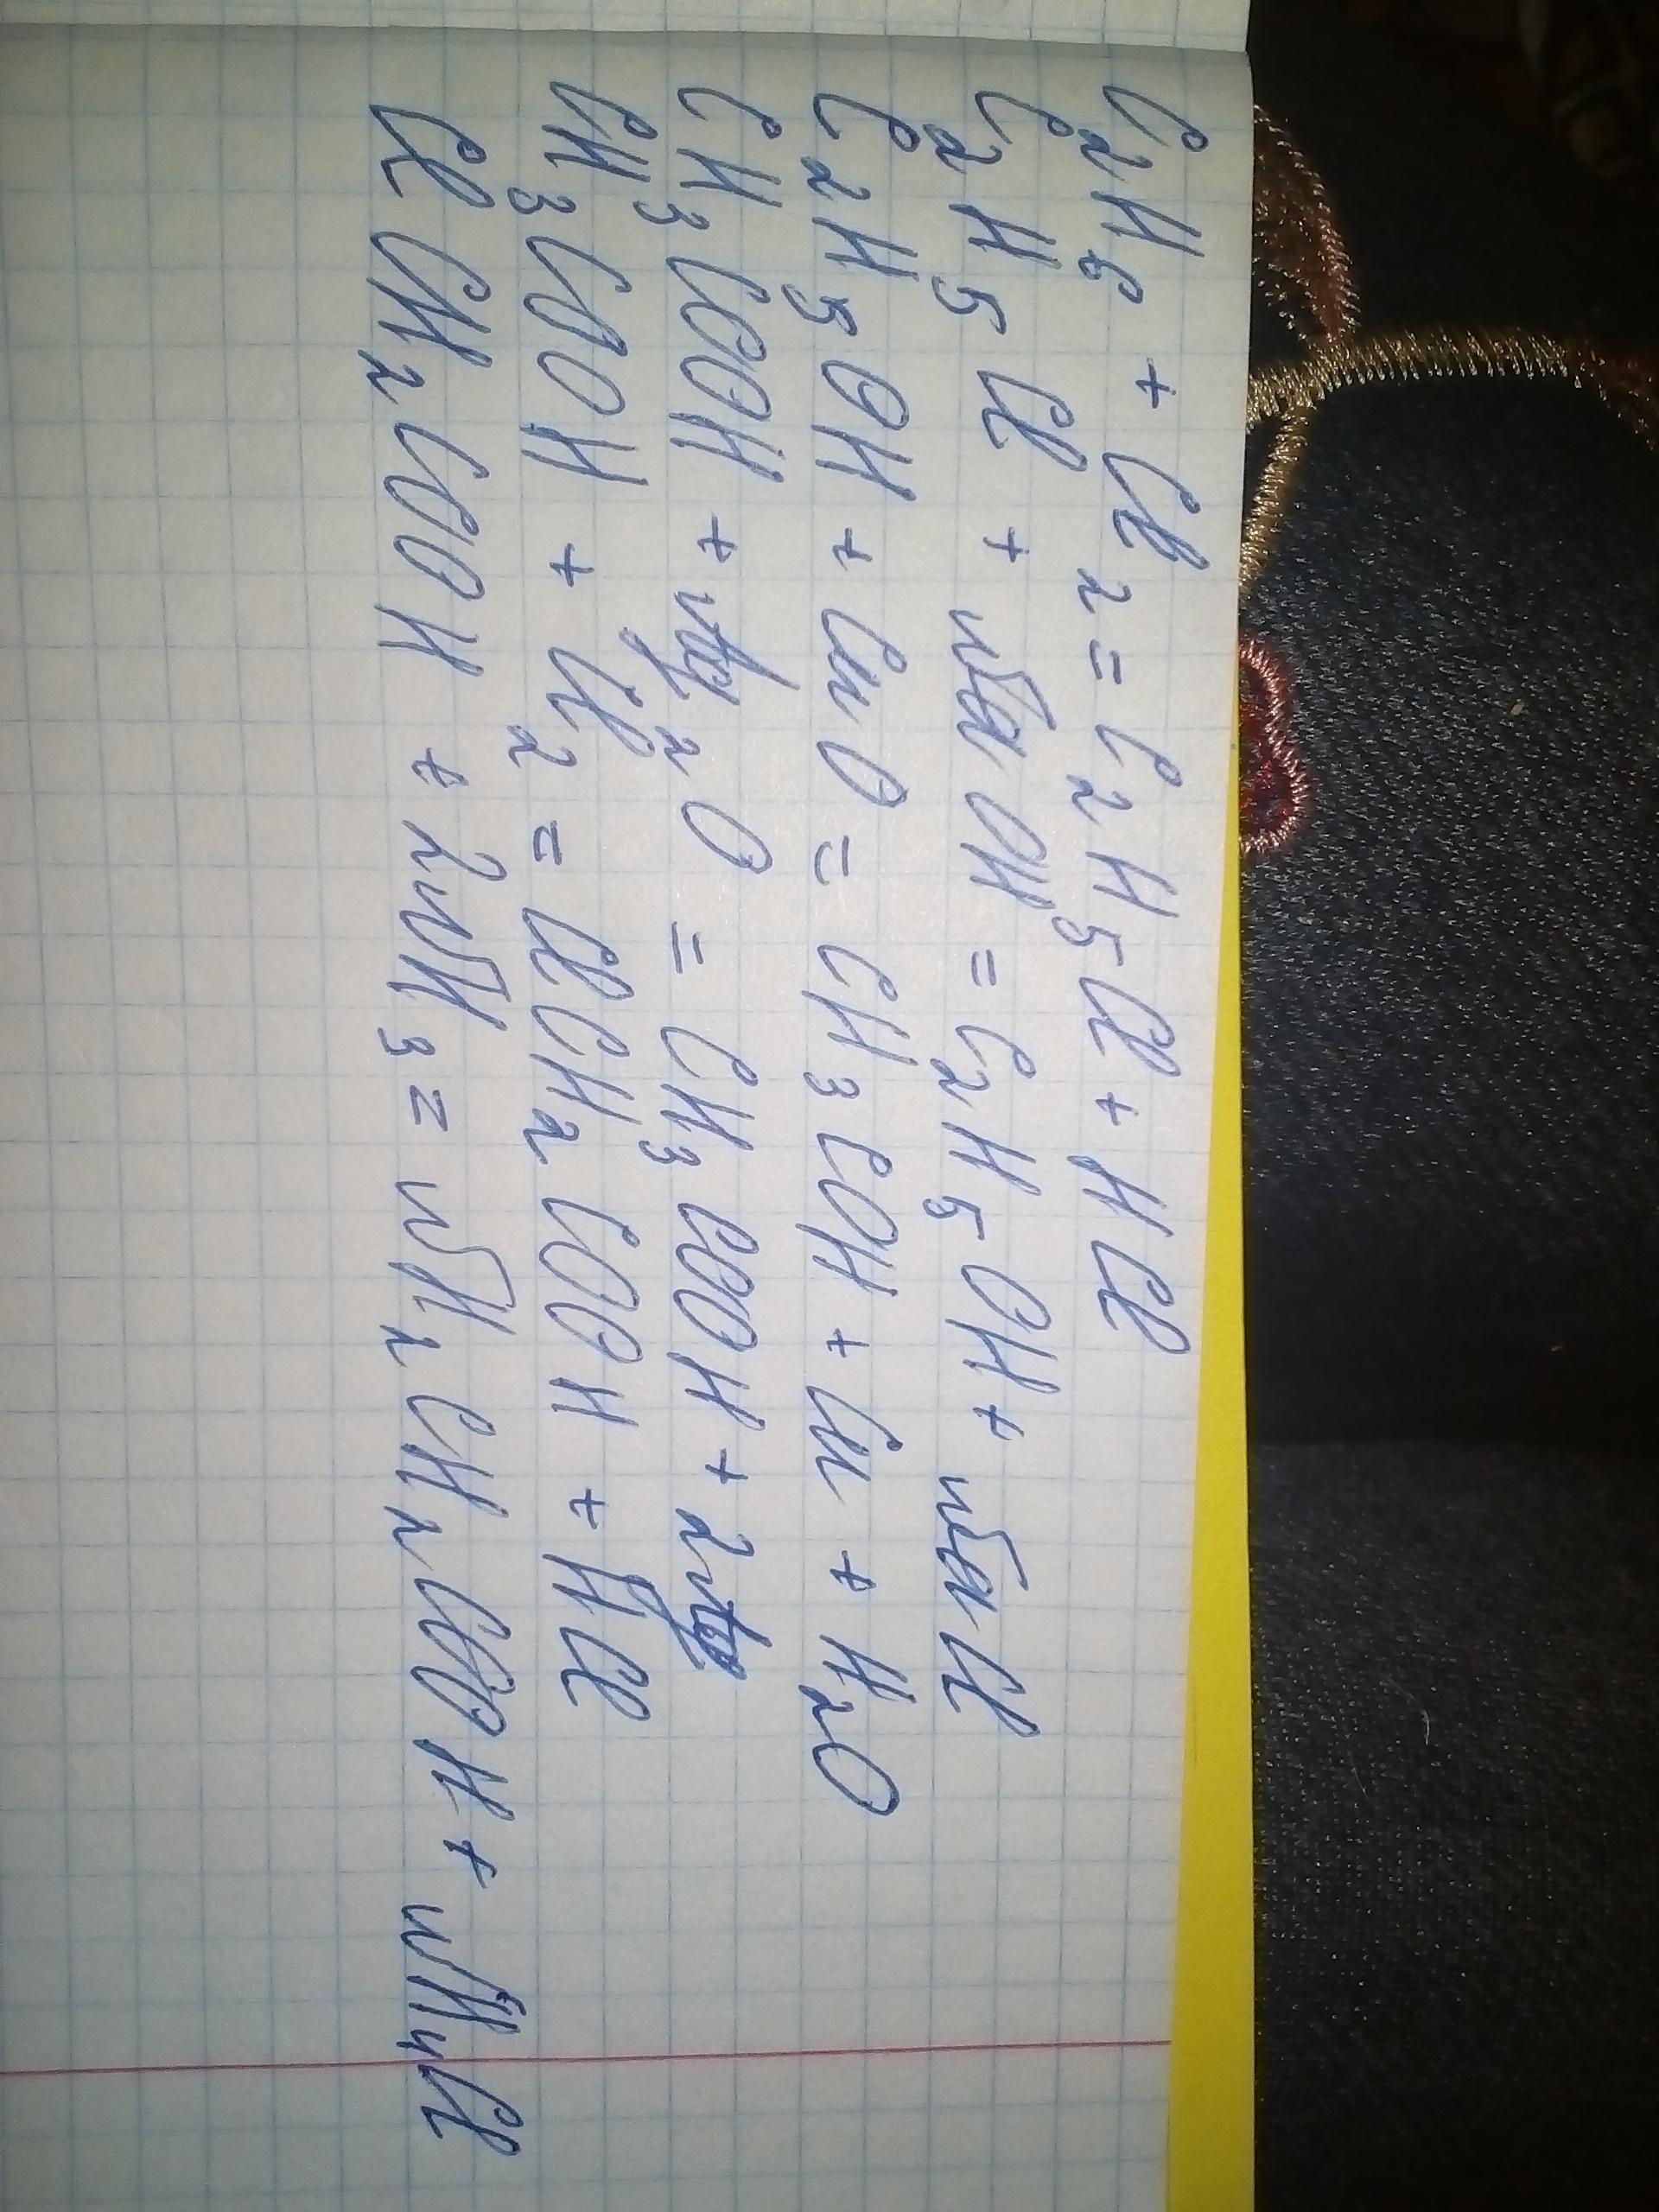 C₂H₅ + Cl₂ = C₂H₅Cl + HCl
C₂H₅Cl + NaOH = C₂H₅OH + NaCl
C₂H₅OH + CuO = CH₃COH + Cu + H₂O
CH₃COOH + Ag₂O = CH₃COOH + 2Ag
CH₃COOH + Cl₂ = ClCH₂COOH + HCl
ClCH₂COOH + 2NH₃ = NH₂CH₂COOH + NH₄Cl